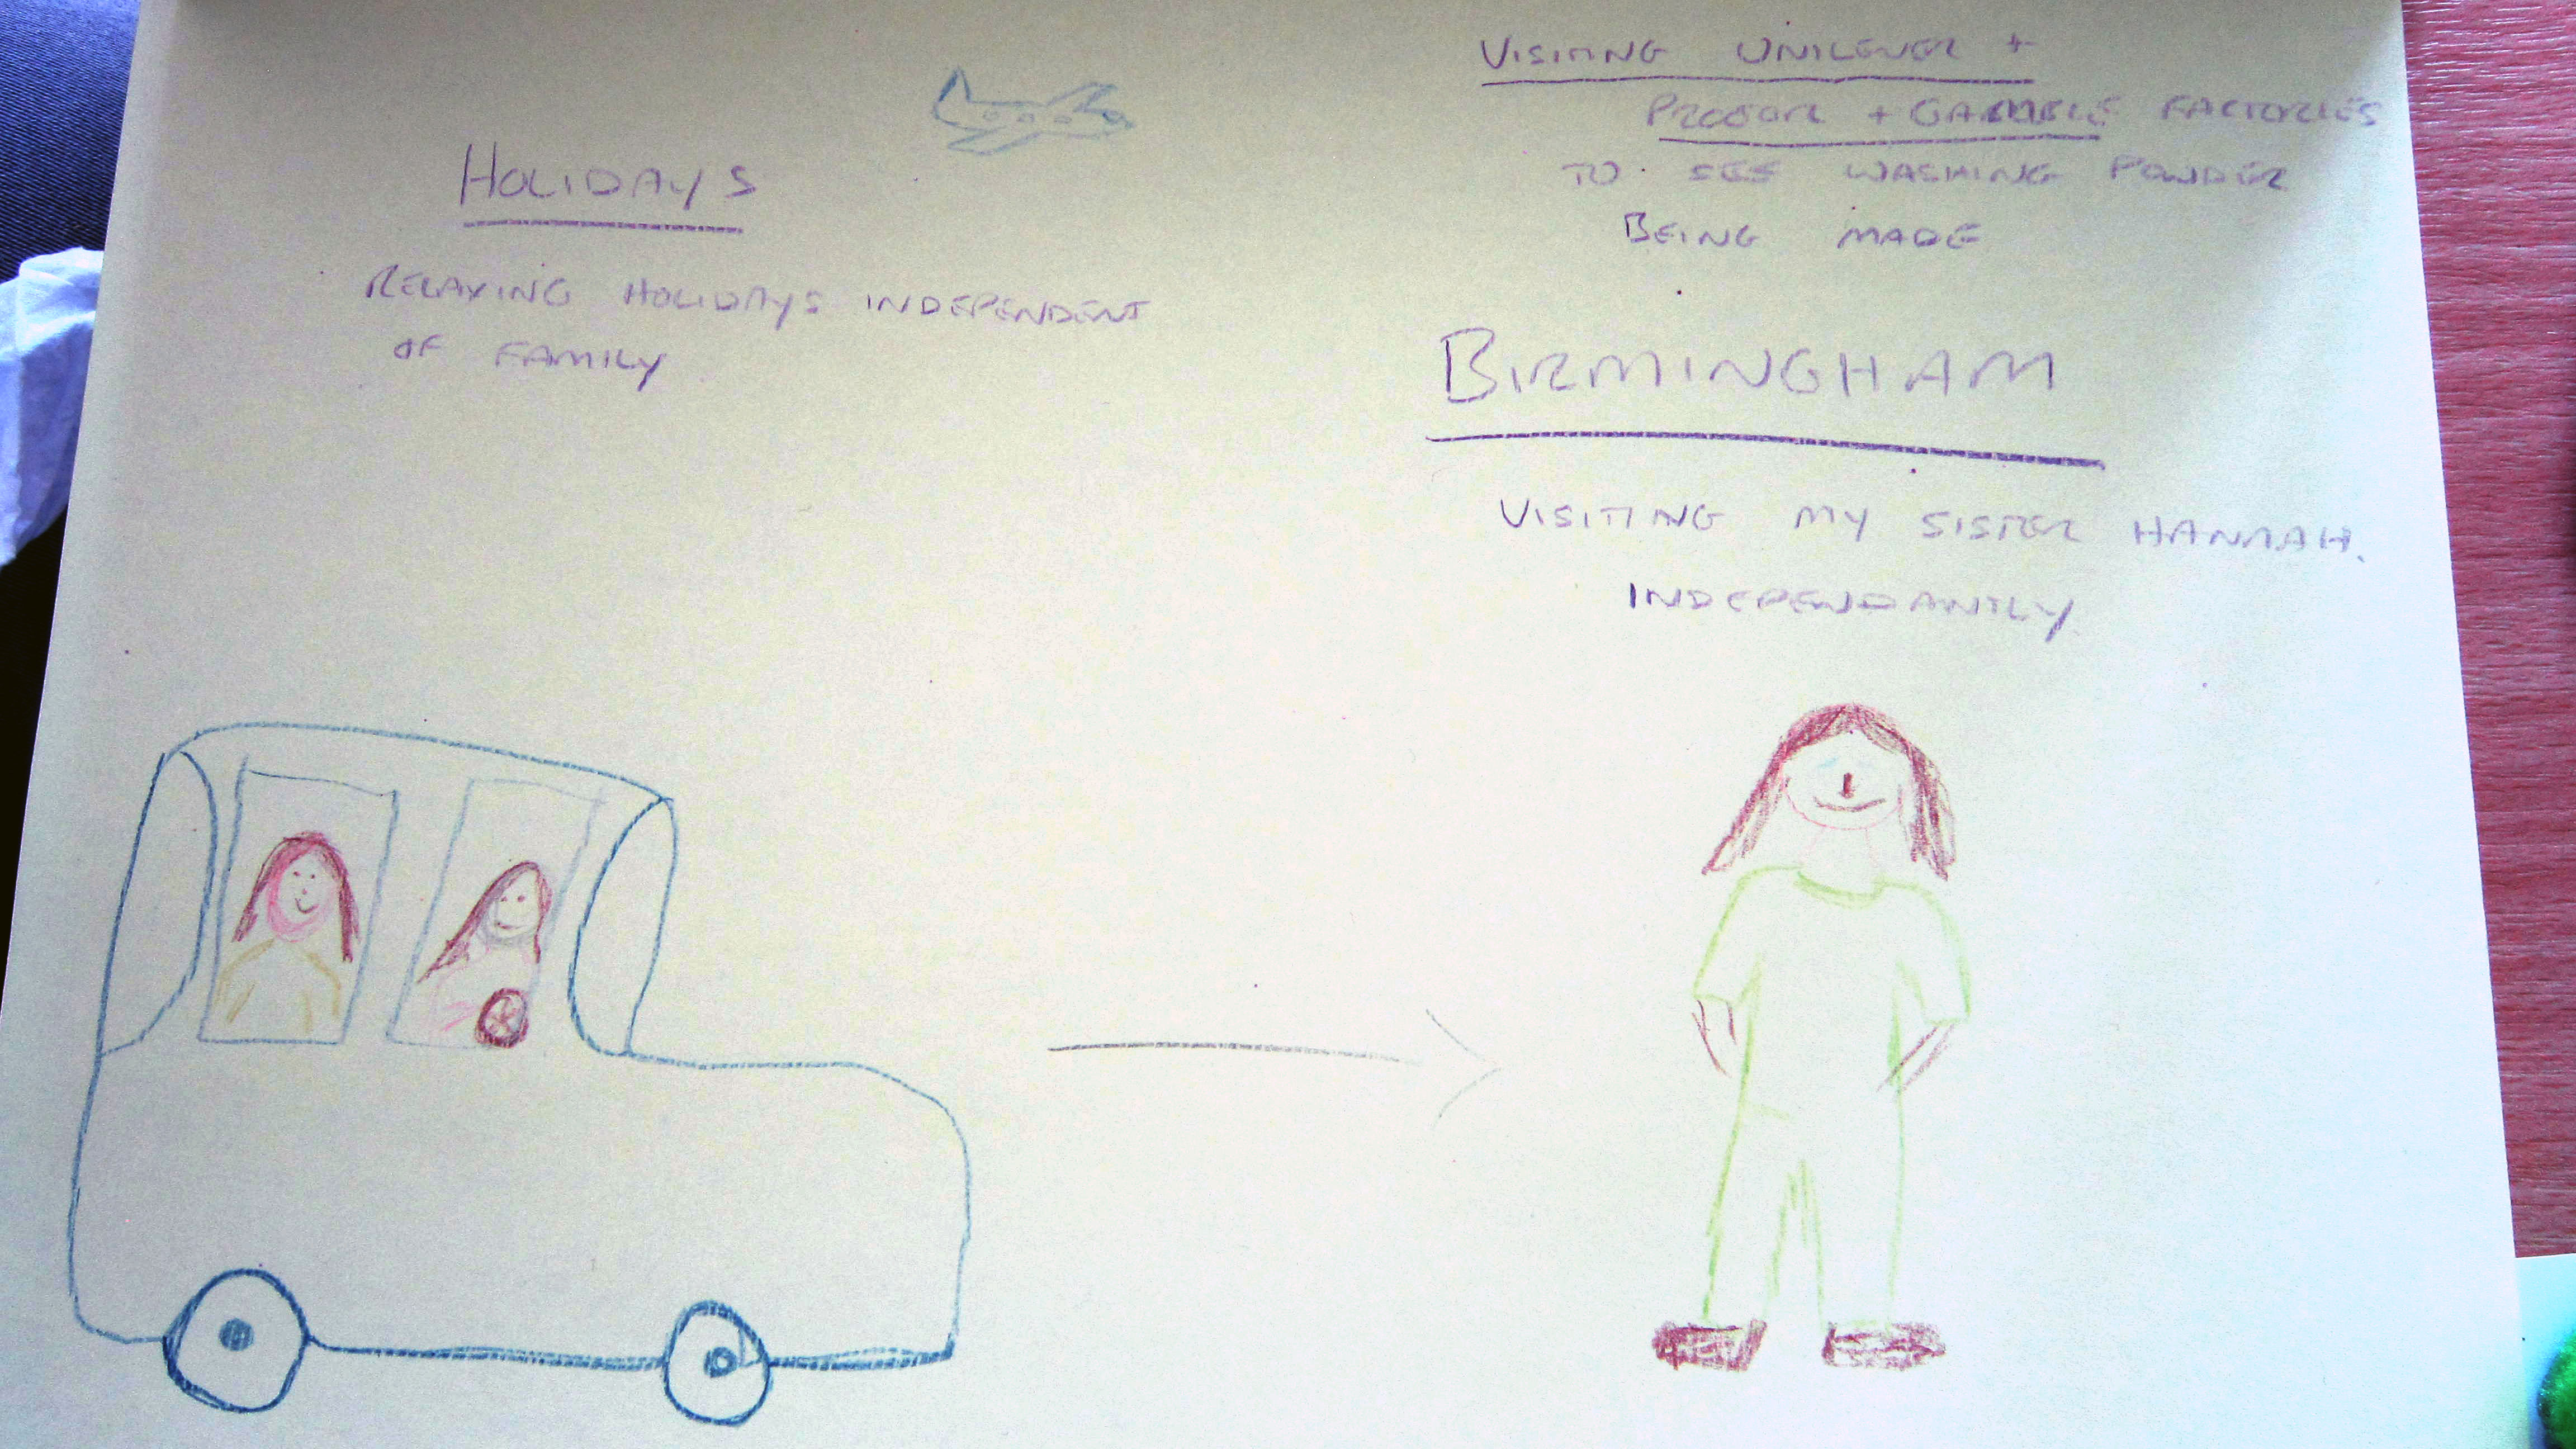 HOLIDAYS
RELAXING HOLIDAYS INDEPENDENT
OF FAMILY
VISITING UNILEVER +
PROCTOR + GAMBLE FACTORIES
TO SEE WASHING POWDER
BEING MADE
BIRMINGHAM
VISITING MY SISTER HANNAH.
INDEPENDANTLY